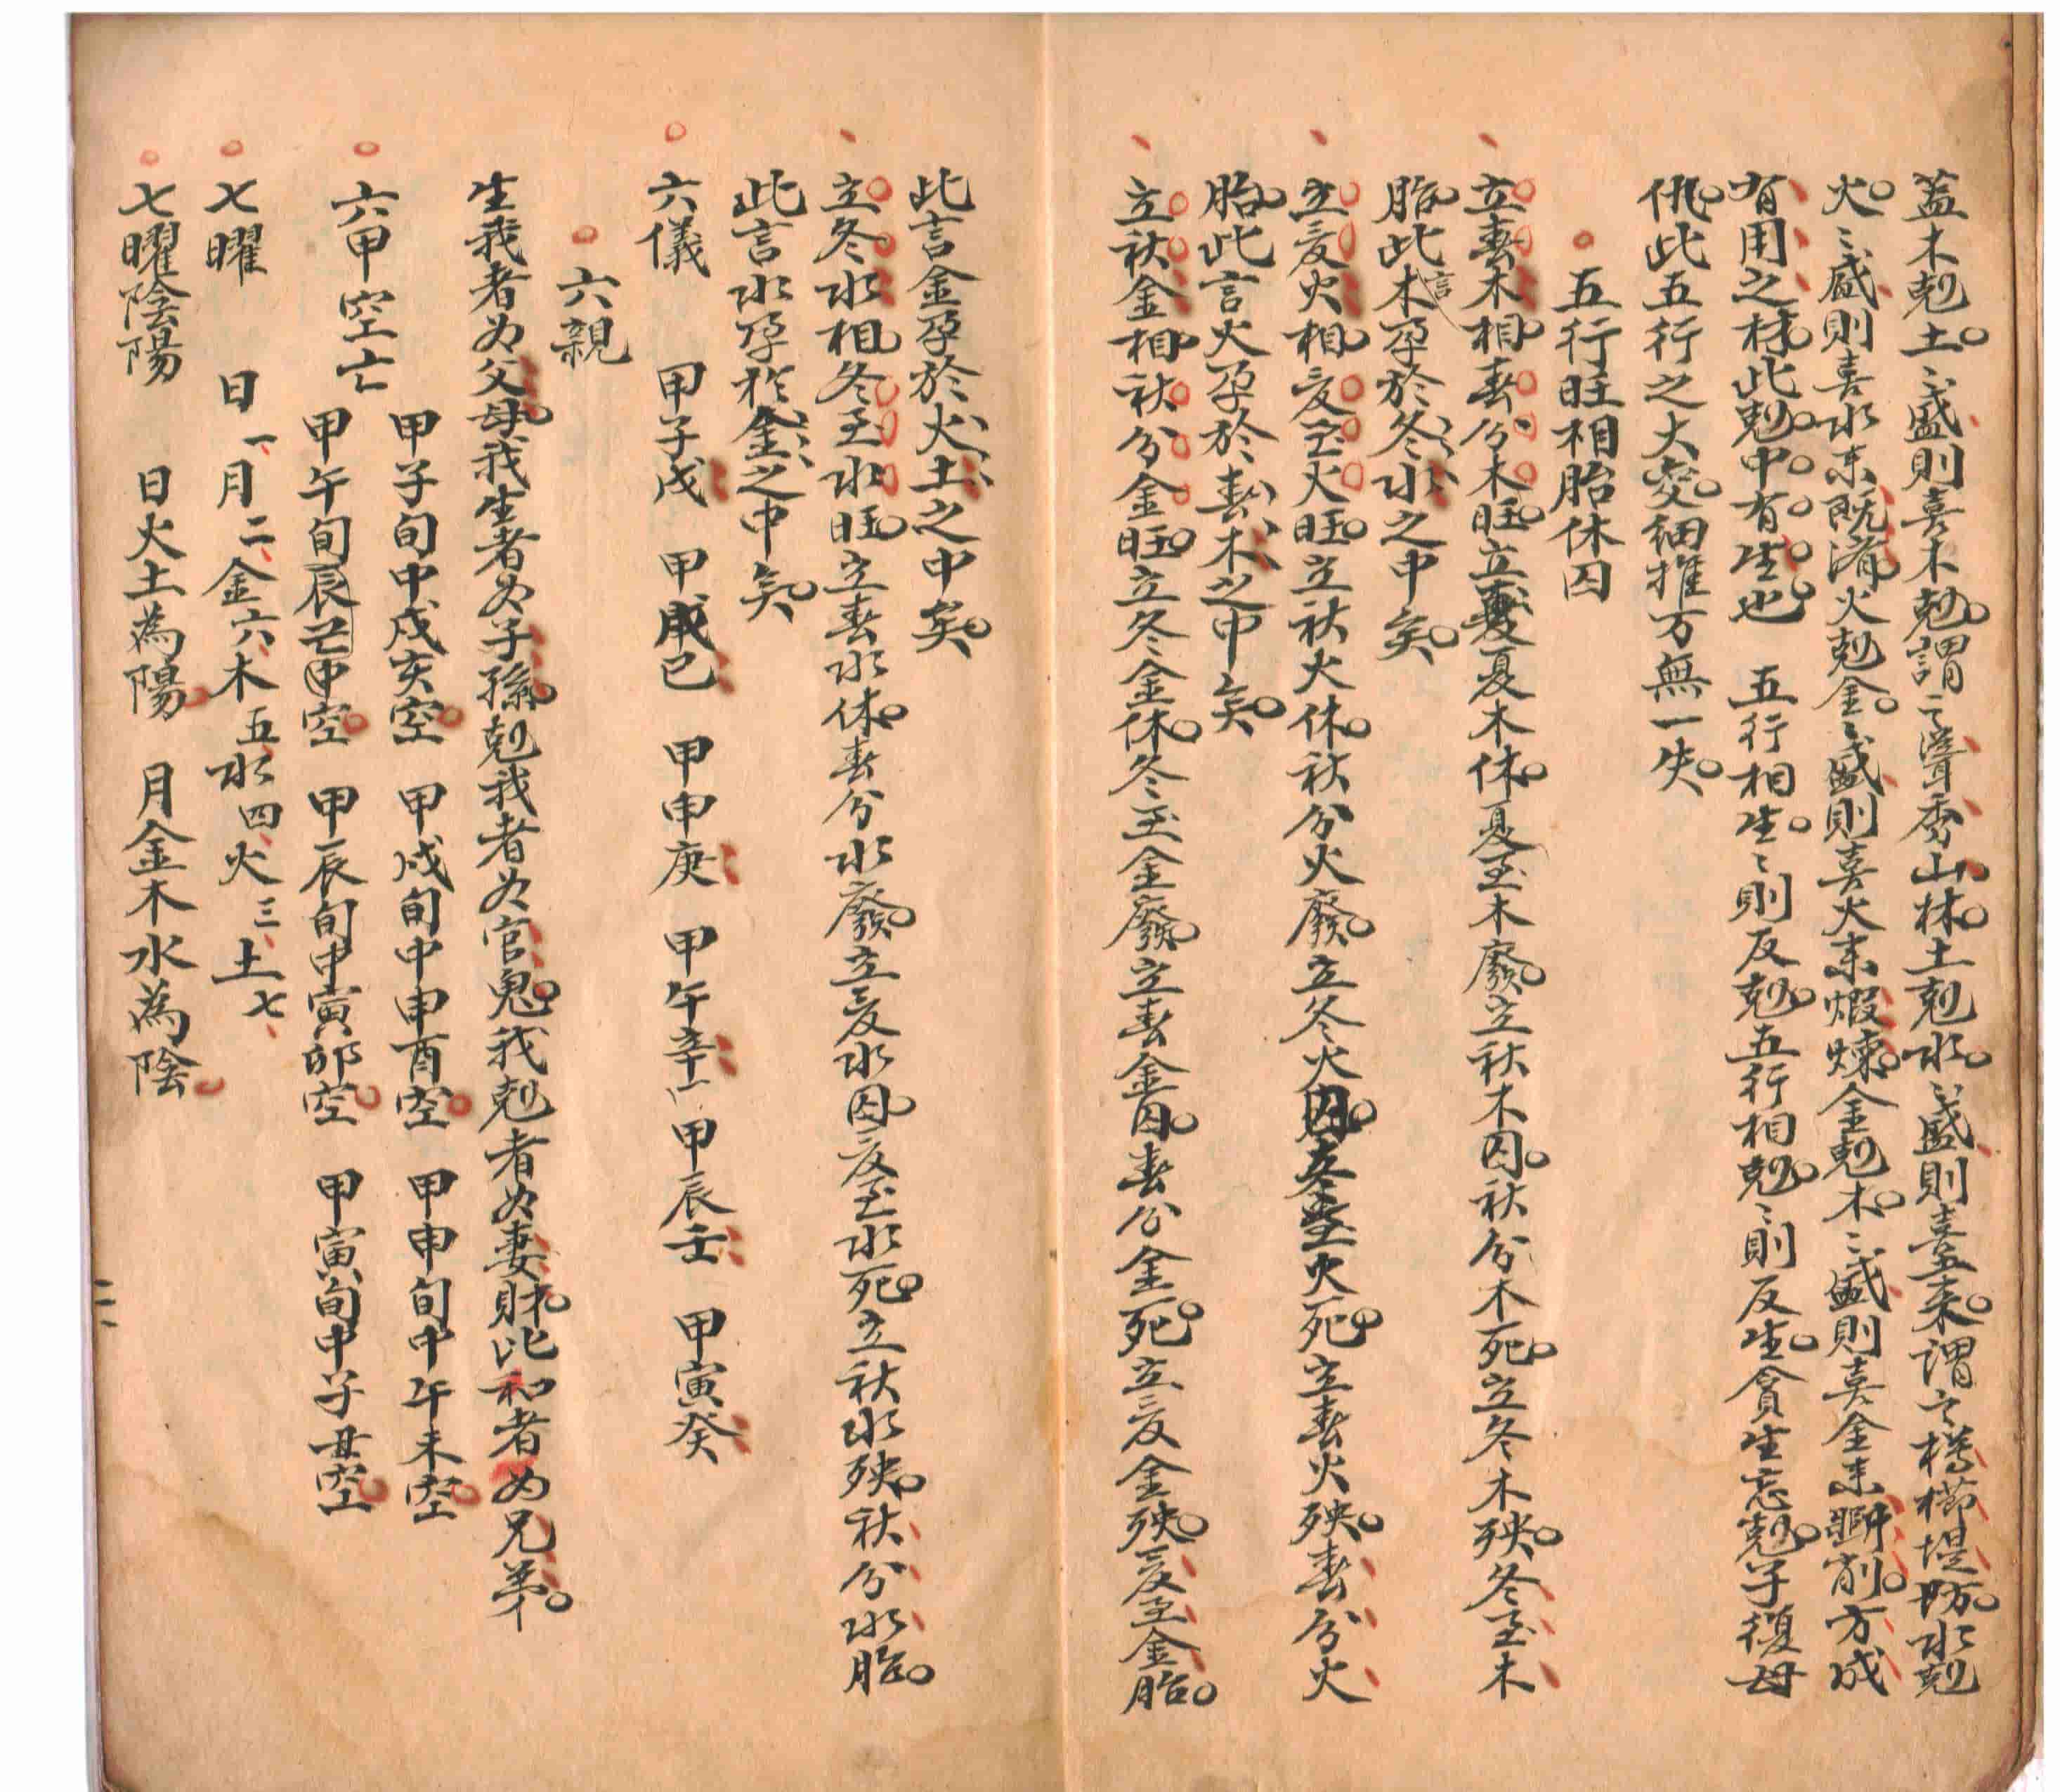 蓋木剋土。〻盛則喜木剋。謂之聳秀山林。土剋水。〻盛則喜土來。謂之樽櫛堤防。水剋
火。〻盛則喜水來既濟火剋金。〻盛則喜火來煆煉。金剋木。〻盛則喜金來斲削。方成
有用之材。此剋。中有生也 五行相生。〻則反剋。五行相剋。〻則反生。貪生忘剋。子復母
仇。此五行之大変。細推万無一失。
五行旺相胎休囚
立春木相。春分木旺。立夏木休。夏至木廢。立秋木囚。秋分木死。立冬木殃。冬至木
胎。此言木孕於冬水之中矣。
立夏火相。夏至火旺。立秋火休。秋分火廢。立冬火囚。冬至火死。立春火殃。春分火
胎。此言火孕於春木之中矣。
立秋金相。秋分金旺。立冬金休。冬至金廢。立春金囚。春分金死。立夏金殃。夏至金胎。
此言金孕於火土之中矣。
立冬水相。冬至水旺。立春水休。春分水廢。立夏水囚。夏至水死。立秋水殃。秋分水胎。
此言水孕於金之中矣。
六儀 甲子戊 甲戌己 甲申庚 甲午辛 甲辰壬 甲寅癸
六親
生我者为父母。我生者为子孫。剋我者为官鬼。我剋者为妻財。比和者为兄弟。
六甲空亡
甲子旬中戌亥空。 甲戌旬中申酉空。 甲申旬中午未空。
甲午旬辰巳中空。 甲辰旬中寅卯空。 甲寅旬中子丑空。
七曜 日一月二金六木五水四火三土七
七曜陰陽 日火土為陽 月金木水為陰